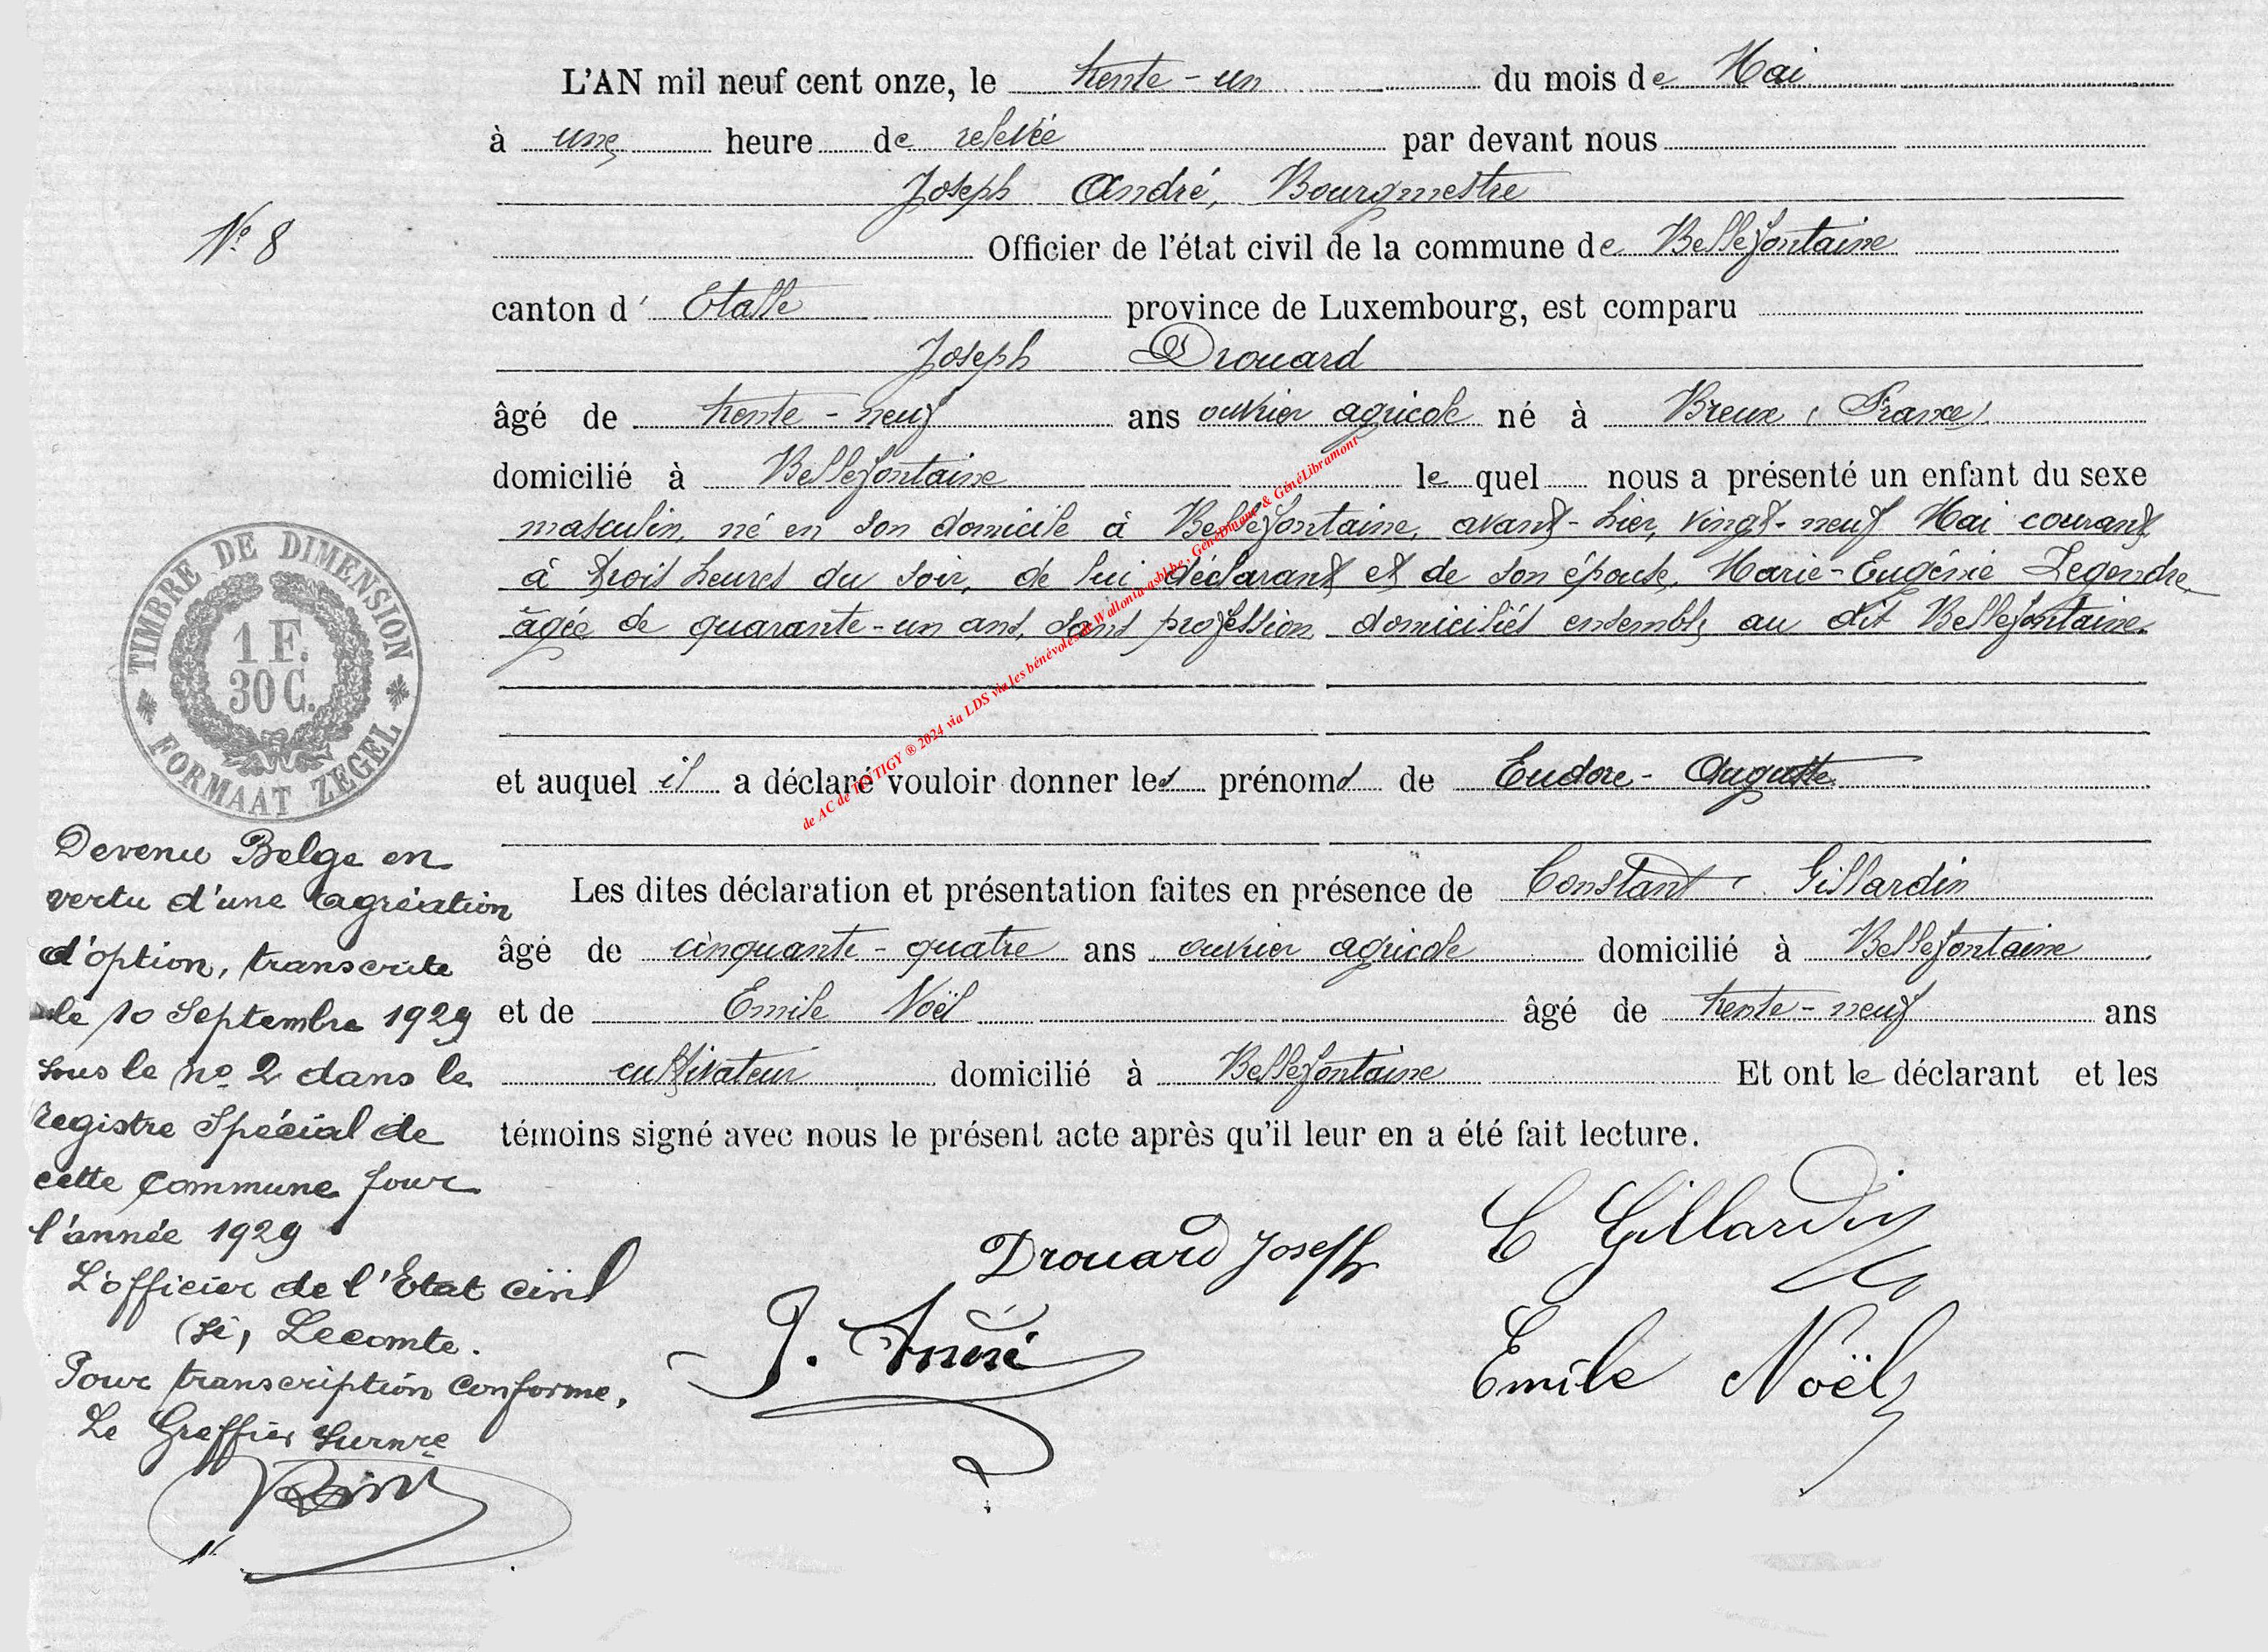 L'AN mil neuf cent onze, le trente-un du mois de Mai
à une heure de relevée par devant nous
Joseph André, Bourgmestre
N° 8
Officier de l'état civil de la commune de Bellefontaine
canton d' Etalle province de Luxembourg, est comparu
Joseph Drouard
âgé de trente-neuf ans ouvrier agricole né à Breux (France)
domicilié à Bellefontaine le quel nous a présenté un enfant du sexe
masculin, né en son domicile à Bellefontaine, avant-hier, vingt-neuf Mai courant
à trois heures du soir, de lui déclarant et de son épouse, Marie-Eugénie Legendre,
âgée de quarante-un ans, sans profession, domiciliés ensemble au dit Bellefontaine.
et auquel il a déclaré vouloir donner les prénoms de Eudore-Auguste
Les dites déclaration et présentation faites en présence de Constant Gillardin
âgé de cinquante-quatre ans ouvrier agricole domicilié à Bellefontaine
et de Emile Noël âgé de trente-neuf ans
cultivateur domicilié à Bellefontaine Et ont le déclarant et les
témoins signé avec nous le présent acte après qu'il leur en a été fait lecture.
Drouard Joseph
C Gillardin
J. André
Emile Noël
TIMBRE DE DIMENSION
1 F.
30 C.
FORMAAT ZEGEL
Devenu Belge en
vertu d'une agréation
d'option, transcrite
le 10 Septembre 1929
sous le no 2 dans le
registre Spécial de
cette commune pour
l'année 1929
L'officier de l'Etat civil
(sé) Lecomte.
Pour transcription conforme.
Le Greffier surnre
de AC de TINTIGY ® 2024 via LDS via les bénévoles de Wallonia-asbl.be, GénéDinant & GénéLibramont